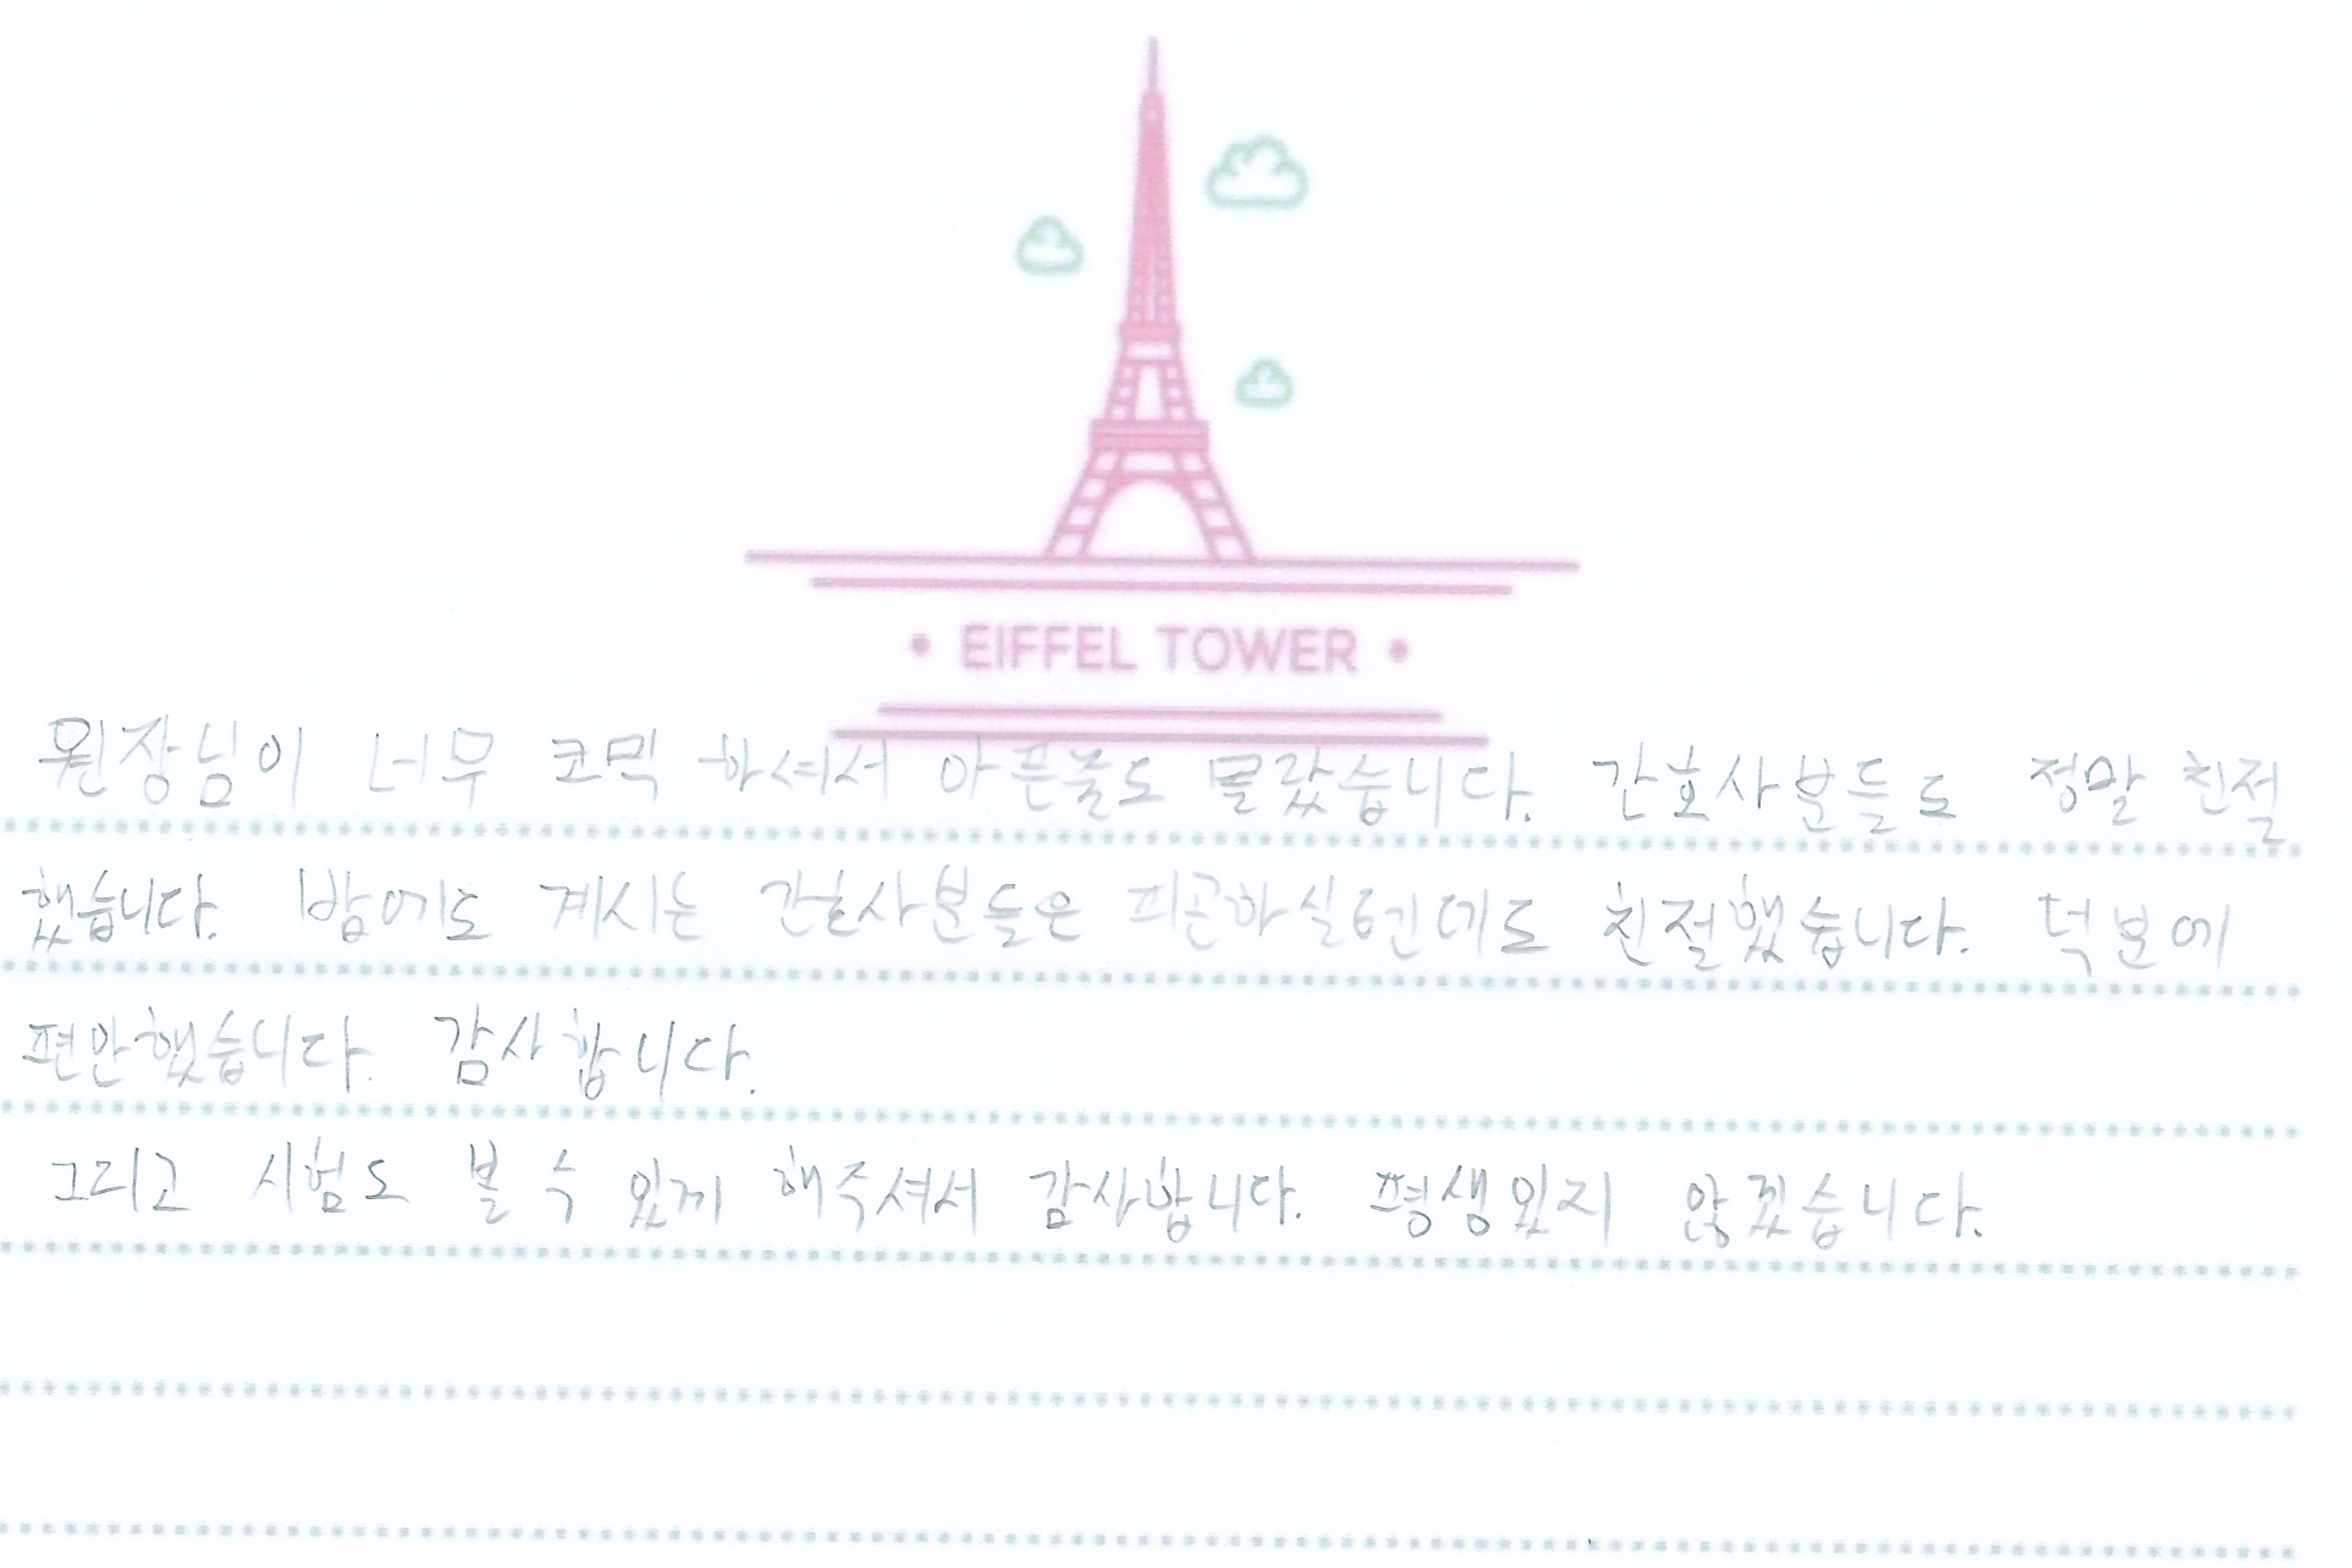 EIFFEL TOWER
원장님이 너무 코믹 하셔서 아픈줄도 몰랐습니다. 간호사분들도 정말 친절
했습니다. 밤에도 계시는 간호사분들은 피곤하실텐데도 친절했습니다. 덕분에
편안했습니다. 감사합니다.
그리고 시험도 볼 수 있게 해주셔서 감사합니다. 평생잊지 않겠습니다.